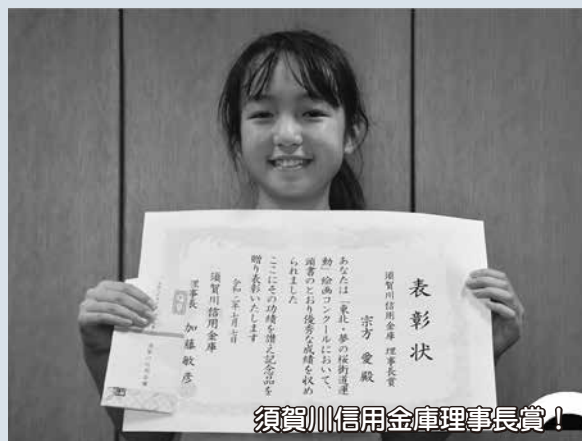 表彰状
須賀川信用金庫 理事長賞
宗方 愛 殿
あなたは「東北・夢の桜街道運
動」絵画コンクールにおいて、
頭書のとおり優秀な成績を収め
られました
ここにその功績を讃え記念品を
贈り表彰いたします
令和二年七月七日
須賀川信用金庫
理事長 加藤敏彦
須賀川信用金庫理事長賞！